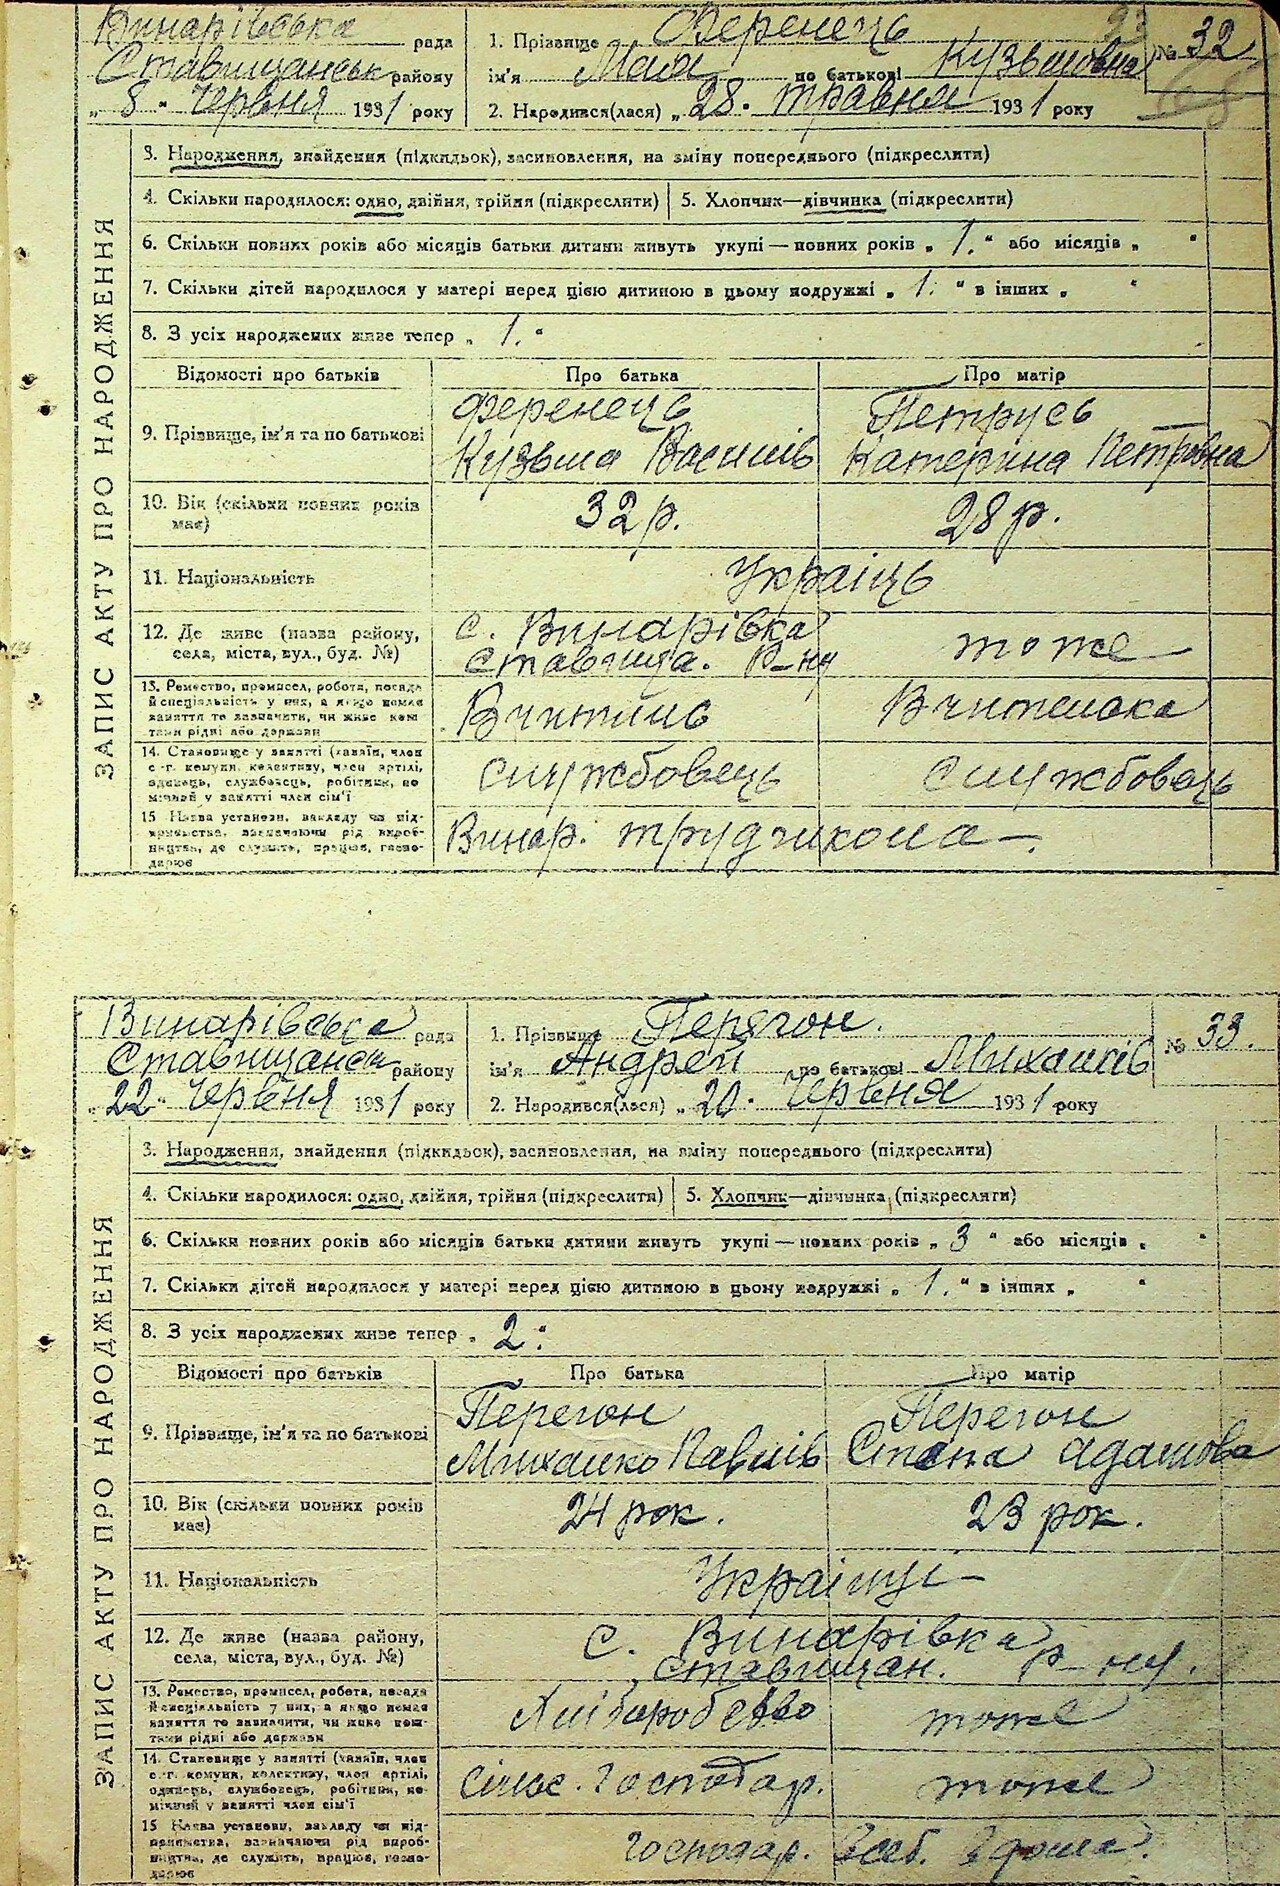 Винарівська рада
Ставищанськ району
„ 8 „ червня 1931 року
1. Прізвище Ференець
ім'я Мая по батькові Кузьмовна
2. Народився(лася) „ 28 „ травня 1931 року
№ 32
ЗАПИС АКТУ ПРО НАРОДЖЕННЯ
3. Народження, знайдення (підкидьок), засиновлення, на зміну попереднього (підкреслити)
4. Скільки народилося: одно, двійня, трійня (підкреслити) 5. Хлопчик—дівчинка (підкреслити)
6. Скільки повних років або місяців батьки дитини живуть укупі — повних років „ 1. “ або місяців „ “
7. Скільки дітей народилося у матері перед цією дитиною в цьому подружжі „ 1. “ в інших „ “
8. З усіх народжених живе тепер „ 1. “
Відомості про батьків Про батька Про матір
9. Прізвище, ім'я та по батькові
Ференець
Кузьма Василів
Петрусь
Катерина Петровна
10. Вік (скільки повних років
має)
32 р.
28 р.
11. Національність Українць
12. Де живе (назва району,
села, міста, вул., буд. №)
с. Винарівка
Ставища. Р-ну
тоже
13. Ремество, промисел, робота, посада
й спеціяльність у них, а якщо немає
заняття то зазначити, чи живе кош
тами рідні або держави
Вчитиль
Вчителька
14. Становище у занятті (хазяїн, член
с.-г. комуни, колективу, член артілі,
одинець, службовець, робітник, по
мічний у занятті член сім'ї
службовець
службовець
15 Назва установи, закладу чи під-
приємства, зазначаючи рід вироб-
ництва, де служить, працює, госпо-
дарює
Винар. трудшкола —.
Винарівська рада
Ставищанськ району
„ 22 „ червня 1931 року
1. Прізвище Перегон.
ім'я Андрей по батькові Михайлів
2. Народився(лася) „ 20 „ червня 1931 року
№ 33.
ЗАПИС АКТУ ПРО НАРОДЖЕННЯ
3. Народження, знайдення (підкидьок), засиновлення, на зміну попереднього (підкреслити)
4. Скільки народилося: одно, двійня, трійня (підкреслити) 5. Хлопчик—дівчинка (підкреслити)
6. Скільки повних років або місяців батьки дитини живуть укупі — повних років „ 3 “ або місяців „ “
7. Скільки дітей народилося у матері перед цією дитиною в цьому подружжі „ 1. “ в інших „ “
8. З усіх народжених живе тепер „ 2. “
Відомості про батьків Про батька Про матір
9. Прізвище, ім'я та по батькові
Перегон
Михайло Павлів
Перегон
Степа Адамова
10. Вік (скільки повних років
має)
24 рок.
23 рок.
11. Національність Українці —
12. Де живе (назва району,
села, міста, вул., буд. №)
с. Винарівка
Ставищан. Р-ну.
13. Ремество, промисел, робота, посада
й спеціяльність у них, а якщо немає
заняття то зазначити, чи живе кош-
тами рідні або держави
Хліборобство
тоже
14. Становище у занятті (хазяїн, член
с.-г. комуни, колективу, член артілі,
одинець, службовець, робітник, по-
мічний у занятті член сім'ї
Сільс. господар.
тоже
15 Назва установи, закладу чи під-
приємства, зазначаючи рід вироб-
ництва, де служить, працює, госпо-
дарює
господар. дома.